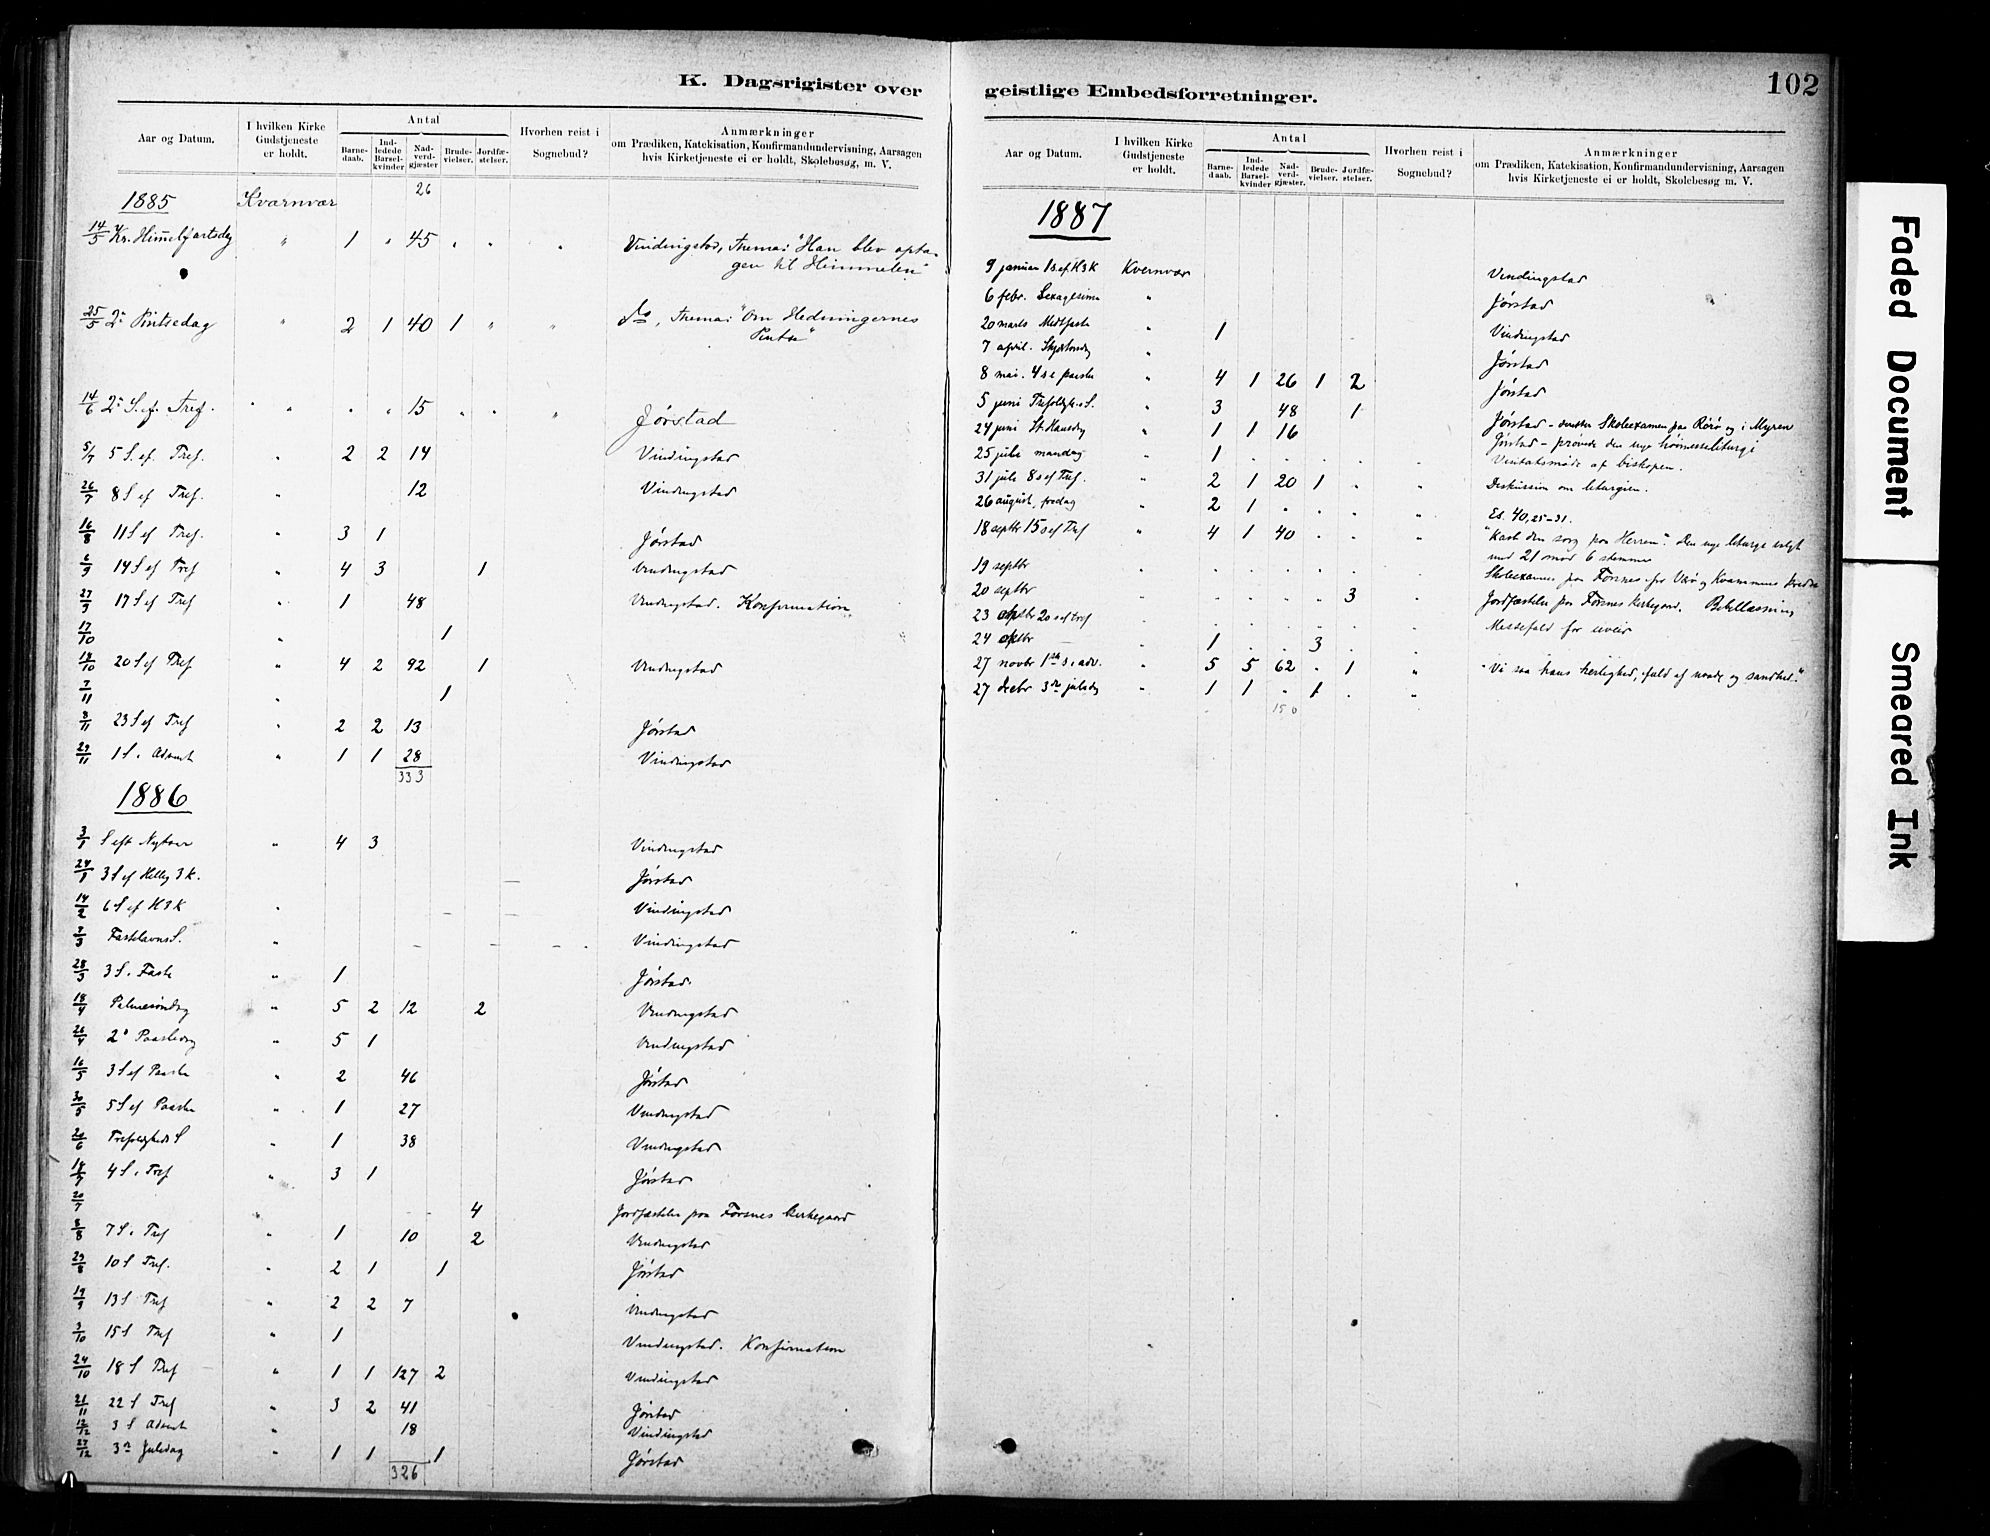 K. Dagsrigister over
Aar og Datum.
I hvilken Kirke Gudstjeneste er holdt.
Antal
Barne-daab.
Ind-ledede Barsel-kvinder
Nad-verd-gjæster
Brude-vielser.
Jordfæ-stelser.
Hvorhen reist i Sognebud?
Anmærkninger
om Prædiken, Katekisation, Konfirmandundervisning, Aarsagen
hvis Kirketjeneste ei er holdt, Skolebesøg, m. V.
26
1885 Kværnvær
14/5 Kr. Himmelfartsdag " 1 " 45 " " " Vindingstad, Thema: "Han blev opta-
gen til Himmelen"
25/5 2n Pintsedag " 2 1 40 1 " " Do, Thema: "Om Hedningernes
Pintse"
14/6 2n S. ef. Tref. " " " 15 " " " Jørstad
5/7 5 S. ef. Tref. " 2 2 14 Vindingstad
26/7 8 S ef Tref. " 12 Vindingstad
16/8 11 S ef Tref. " 3 1 Jørstad
6/9 14 S ef Tref " 4 3 1 Vindingstad
27/9 17 S ef Tref " 1 48 Vindingstad. Konfirmation
17/10 " 1
18/10 20 S ef Tref " 4 2 92 1 Vindingstad
7/11 " 1
8/11 23 S ef Tref " 2 2 13 Jørstad
29/11 1 S. i Advent " 1 1 28 Vindingstad
333
1886
3/1 S eft Nytaar " 4 3 Vindingstad
24/1 3 S ef Hellig 3 K. Jørstad
14/2 6 S ef H 3 K " Vindingstad
7/3 Fastelavns S. " Vindingstad
28/3 3 S. i Faste " 1 Jørstad
18/4 Palmesøndag " 5 2 12 2 Vindingstad
26/4 2n Paaskedag " 5 1 Vindingstad
16/5 3 S ef Paaske " 2 46 Jørstad
30/5 5 S ef Paaske " 1 27 Vindingstad
20/6 Trefoldigheds S " 1 38 Vindingstad
18/7 4 S. Tref " 3 1 Jørstad
20/7 " 4 Jordfæstelse paa Forsnes kirkegaard
8/8 7 S. Tref " 1 10 2 Vindingstad
29/8 10 S Tref. " 2 1 1 Jørstad
19/9 13 S Tref " 2 2 7 Vindingstad
3/10 15 S Tref " 1 Vindingstad. Konfirmation
24/10 18 S Tref " 1 1 127 2 Vindingstad
21/11 22 S Tref " 3 2 41 Jørstad
12/12 3 S Advent " 18 Vindingstad
27/12 3n Juledag 1 1 1 Jørstad
326
geistlige Embedsforretninger.
102
Aar og Datum.
I hvilken Kirke Gudstjeneste er holdt.
Antal
Barne-daab.
Ind-ledede Barsel-kvinder
Nad-verd-gjæster.
Brude-vielser.
Jordfæ-stelser.
Hvorhen reist i Sognebud?
Anmærkninger
om Prædiken, Katekisation, Konfirmandundervisning, Aarsagen
hvis Kirketjeneste ei er holdt, Skolebesøg m. V.
1887
9 januar 1 s. ef. H 3 K Kvernvær Vindingstad
6 febr. Sexagesima " Jørstad
20 marts Midtfaste " 1 Vindingstad
7 april. Skjærtorsdag " Jørstad
8 mai. 4 s e paaske " 4 1 26 1 2 Jørstad
5 juni Trefoldigh. S. " 3 48 1 Jørstad - derefter Skoleexamen paa Rørø og i Myren
24 juni St Hansdag " 1 1 16 Jørstad - prøvede den nye høimesseliturgi
25 juli mandag " 1 Visitatsmøde af biskopen.
31 juli 8 s ef Tref. " 2 1 20 1 Diskussion om liturgien.
26 august, fredag 2 1 Es. 40, 25-31.
18 septbr 15 s ef Tref " 4 1 40 "Kast din sorg paa Herren". Den nye liturgi valgt
med 21 mod 6 stemmer
19 septbr Skoleexamen paa Forsnes for Ukø og Kvammens kreds
20 septbr 3 Jordfæstelse paa Forsnes kirkegaard. Bibellæsning
23 oktbr 20 s ef tref Messefald for uveir
24 oktbr 1 3
27 novbr 1ste s. i adv. " 5 5 62 1 "Vi saa hans herlighed, fuld af naade og sandhed."
27 decbr 3die juledag " 1 1 1
150
Faded Document
Smeared Ink